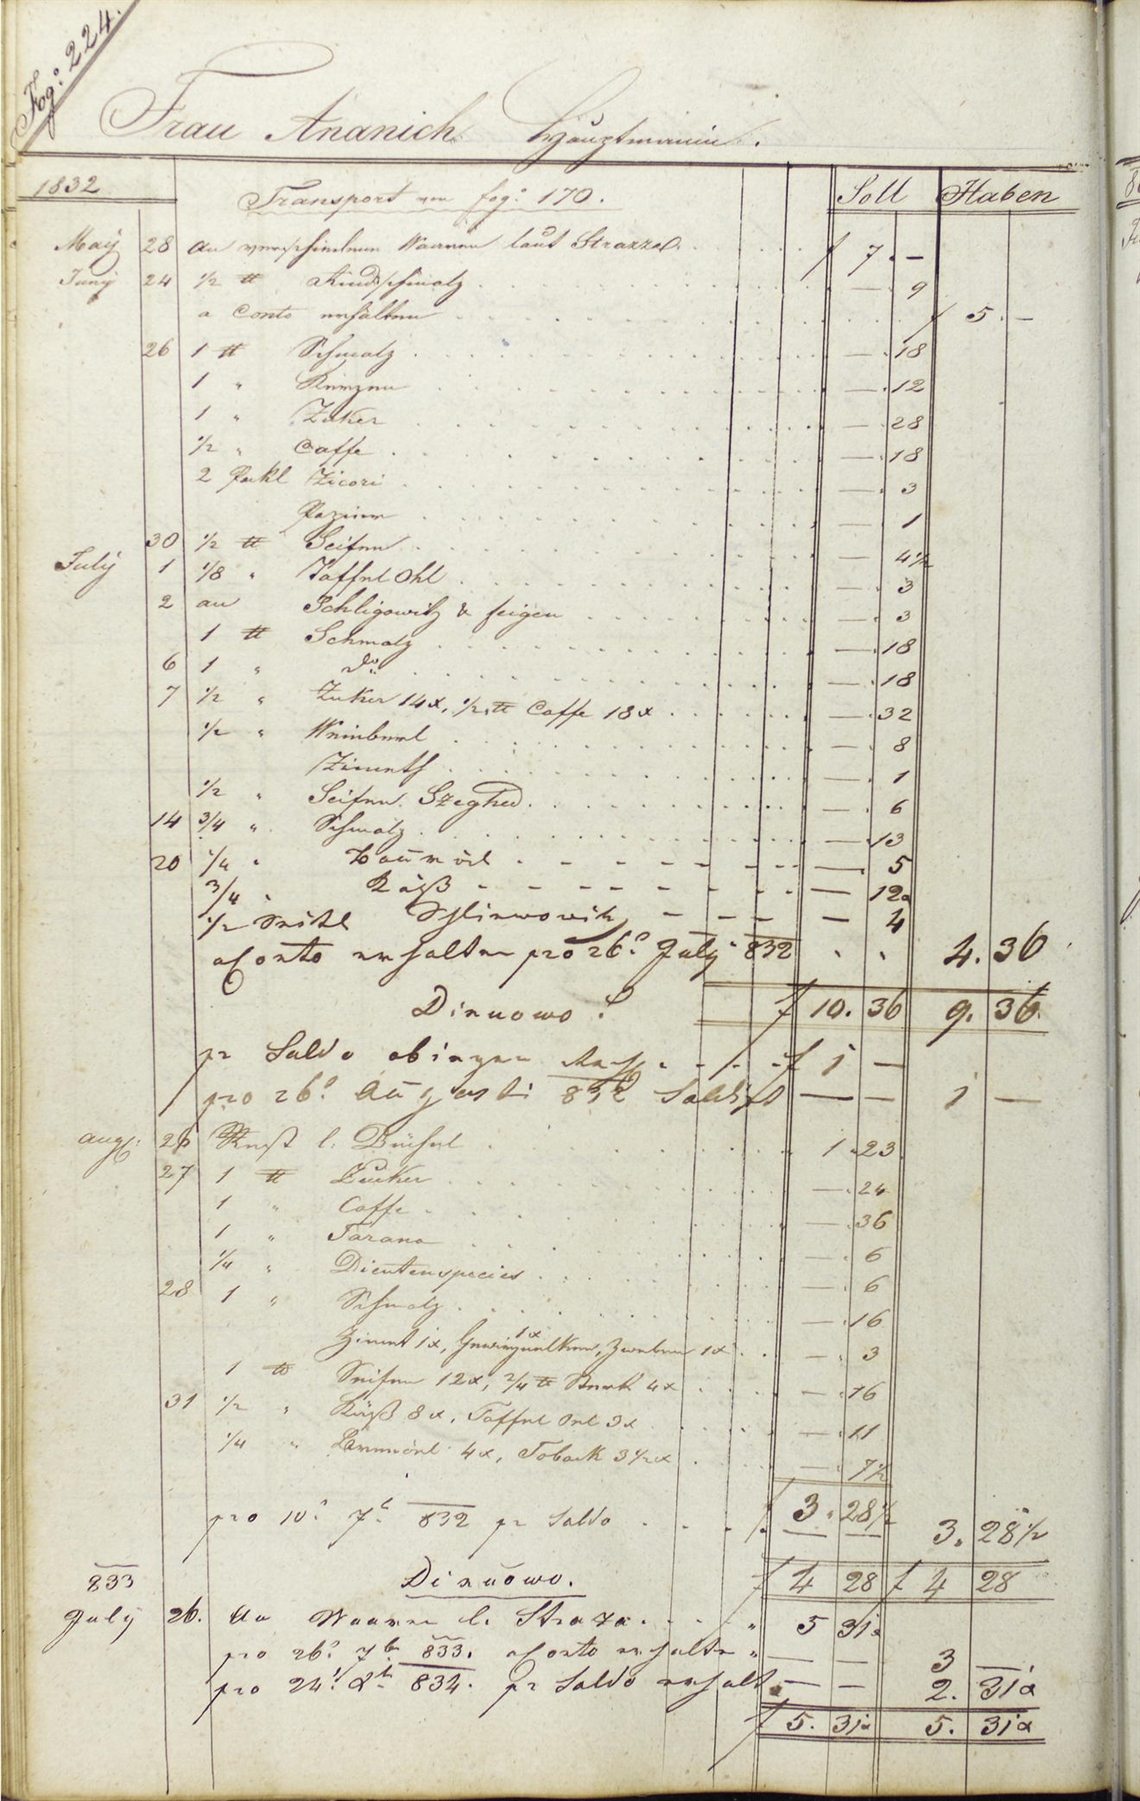 Fog: 224.
Frau Ananich Hauptmanin.
1832 Transport von fog: 170. Soll Haben
May 28 an verschiedenen Waaren laut Strazze. f 7 . —
Juny 24 1/2 ℔ Rindschmalz — 9
a Conto erhalten f 5 . —
26 1 ℔ Schmalz — 18
1 " Kerzen — 12
1 " Zuker — 28
1/2 " Caffe — 18
2 Pakl Zicori — 3
Papier — 1
30 1/2 ℔ Seifen — 4 1/2
July 1 1/8 " Taffel Ohl — 3
2 an Schligowitz & feigen — 3
1 ℔ Schmalz — 18
6 1 " do — 18
7 1/2 " Zuker 14x, 1/2 ℔ Caffe 18x — 32
1/2 " Weinberl — 8
Zimeth — 1
1/2 " Seifen Szeghed. — 6
14 3/4 " Schmalz — 13
20 1/4 " Baumöel — 5
3/4 " Käß — 12
1/2 Seitl Schliwowitz — 4
a Conto erhalten pro 26: July 832 4. 36
Dinuowo f 10. 36 9. 36
pr Saldo obigen f 1 —
pro 26: Augusti 832 Saldirt — — 1 —
aug: 26 Rest l. Büchel 1. 23
27 1 ℔ Zucker — 24
1 " Caffe — 36
1 " Tarana — 6
1/4 " — 6
28 1 " Schmalz — 16
Zimmt 1x, Gewürznelken 1x, Zweben 1x — 3
1 ℔ Seifen 12x, 2/4 ℔ 4x — 16
31 1/2 " Käß 8x, Taffel Oel 3x — 11
1/4 " Baumöel 4x, Toback 3 1/2 x — 7 1/2
f 3. 28 1/2
pro 10: 7b 832 pr Saldo — — 3. 28 1/2
833 Dinuowo. f 4 28 f 4 28
July 26. An Waaren l. Straza 5 31
pro 26: 7b 833. a Conto erhalten — — 3 —
pro 24: 834. pr Saldo erhalt — — 2. 31
f 5. 31 5. 31